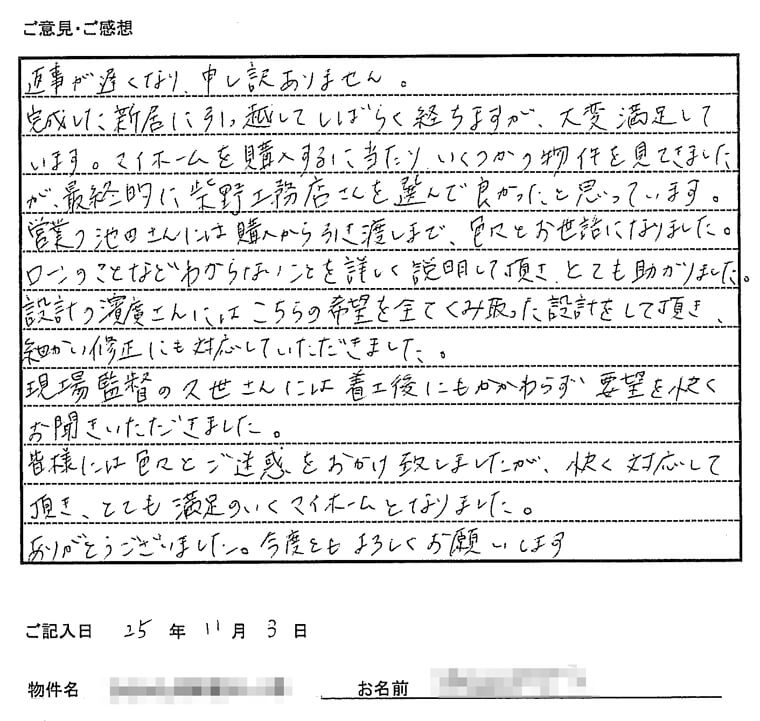 ご意見・ご感想
返事が遅くなり、申し訳ありません。
完成した新居に引っ越してしばらく経ちますが、大変満足して
います。マイホームを購入するに当たり いくつかの物件を見てきました
が、最終的に柴野工務店さんを選んで良かったと思っています。
営業の池田さんには購入から引き渡しまで、色々とお世話になりました。
ローンのことなどわからないことを詳しく説明して頂き、とても助かりました。
設計の濱廣さんにはこちらの希望を全てくみ取った設計をして頂き、
細かい修正にも対応していただきました。
現場監督の久世さんには着工後にもかかわらず 要望を快く
お聞きいただきました。
皆様には色々とご迷惑をおかけ致しましたが、快く対応して
頂き、とても満足のいくマイホームとなりました。
ありがとうございました。今度ともよろしくお願いします
ご記入日 25 年 11 月 3 日
物件名 お名前